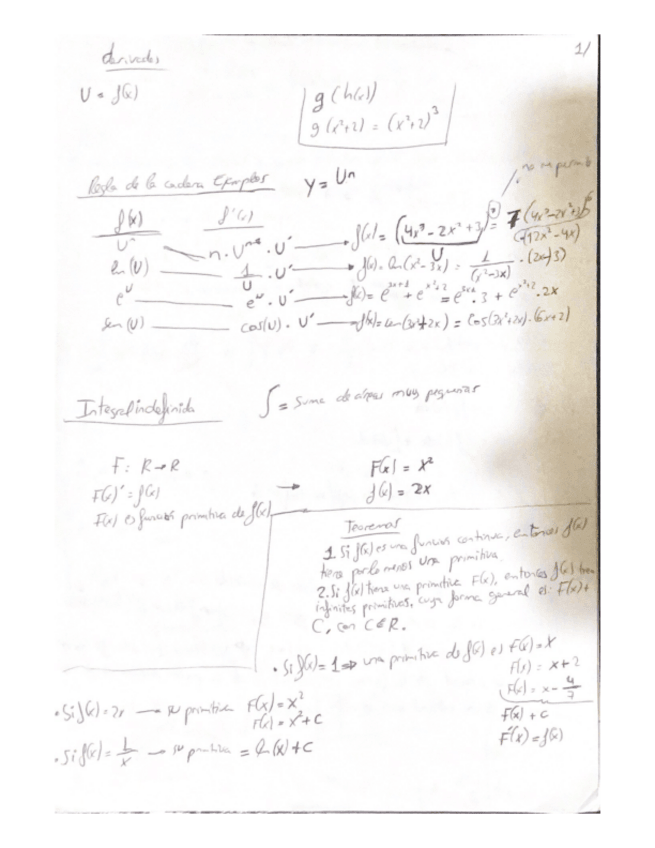 1/
derivadas
U = f(x)
g(h(x))
g(x²+2) = (x²+2)³
Regla de la cadena Ejemplos
y = Uⁿ
f(x) f'(x)
Uⁿ n · Uⁿ⁻¹ · U' f(x) = (4x³ - 2x² + 3) = 7(4x³-2x²+3)⁶
U (12x² - 4x)
ln(U) 1/U · U' f(x) = ln(x² - 3x) = 1/(x²-3x) · (2x-3)
e^U e^U · U'
sen(U) cos(U) · U' = cos(3x²+2x) · (6x+2)
Integral indefinida ∫ = suma de áreas muy pequeñas
F: R→R F(x) = x²
F(x)' = f(x) → f(x) = 2x
F(x) es función primitiva de f(x)
Teoremas
1. Si f(x) es una función continua, entonces f(x)
tiene por lo menos una primitiva.
2. Si f(x) tiene una primitiva F(x), entonces f(x) tiene
infinitas primitivas, cuya forma general es: F(x)+
C, con C∈R.
• Si f(x) = 1 ⇒ una primitiva de f(x) es F(x) = x
F(x) = x + 2
F(x) = x - 4/7
F(x) + C
F'(x) = f(x)
• Si f(x) = 2x → su primitiva F(x) = x²
F(x) = x² + C
• Si f(x) = 1/x → su primitiva = ln(x) + C